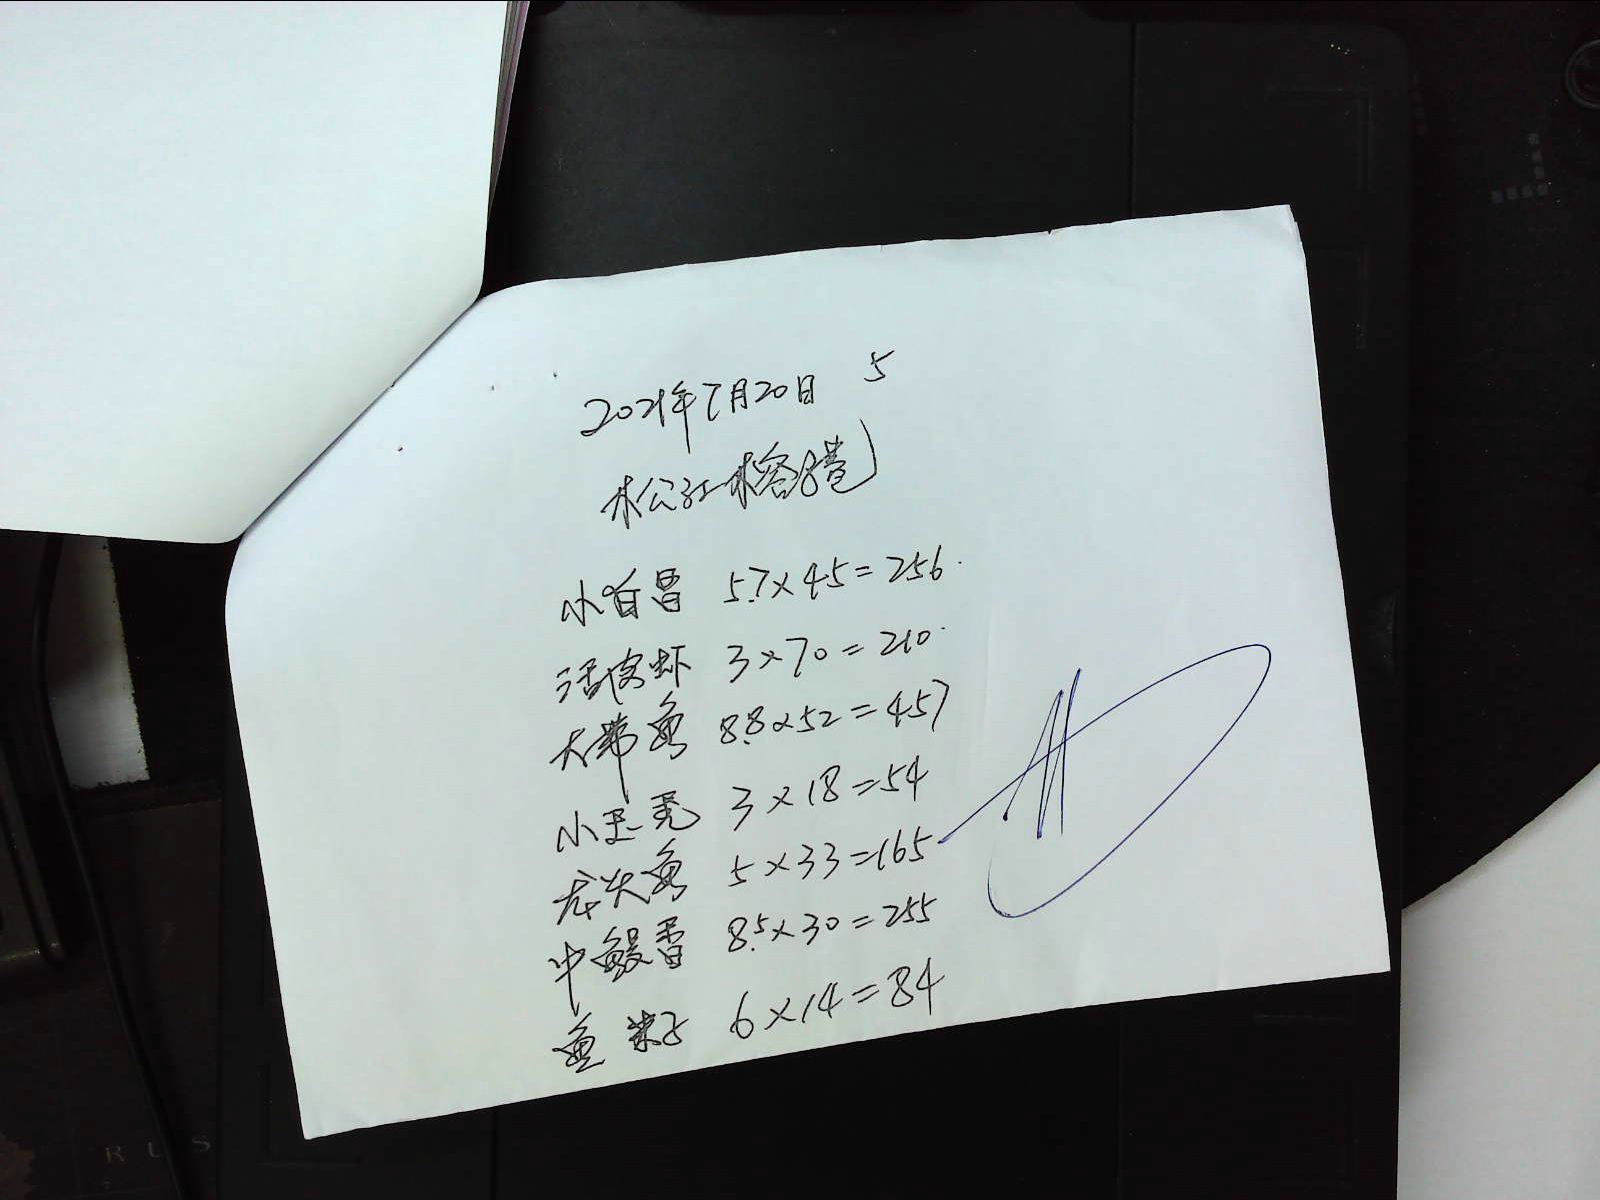 2021年7月20日 5
松江榕港
小白昌 5.7×45=256.
活皮虾 3×70=210.
大带鱼 8.8×52=457
小玉秃 3×18=54
龙头鱼 5×33=165
中鳗香 8.5×30=255
鱼籽 6×14=84
RUS